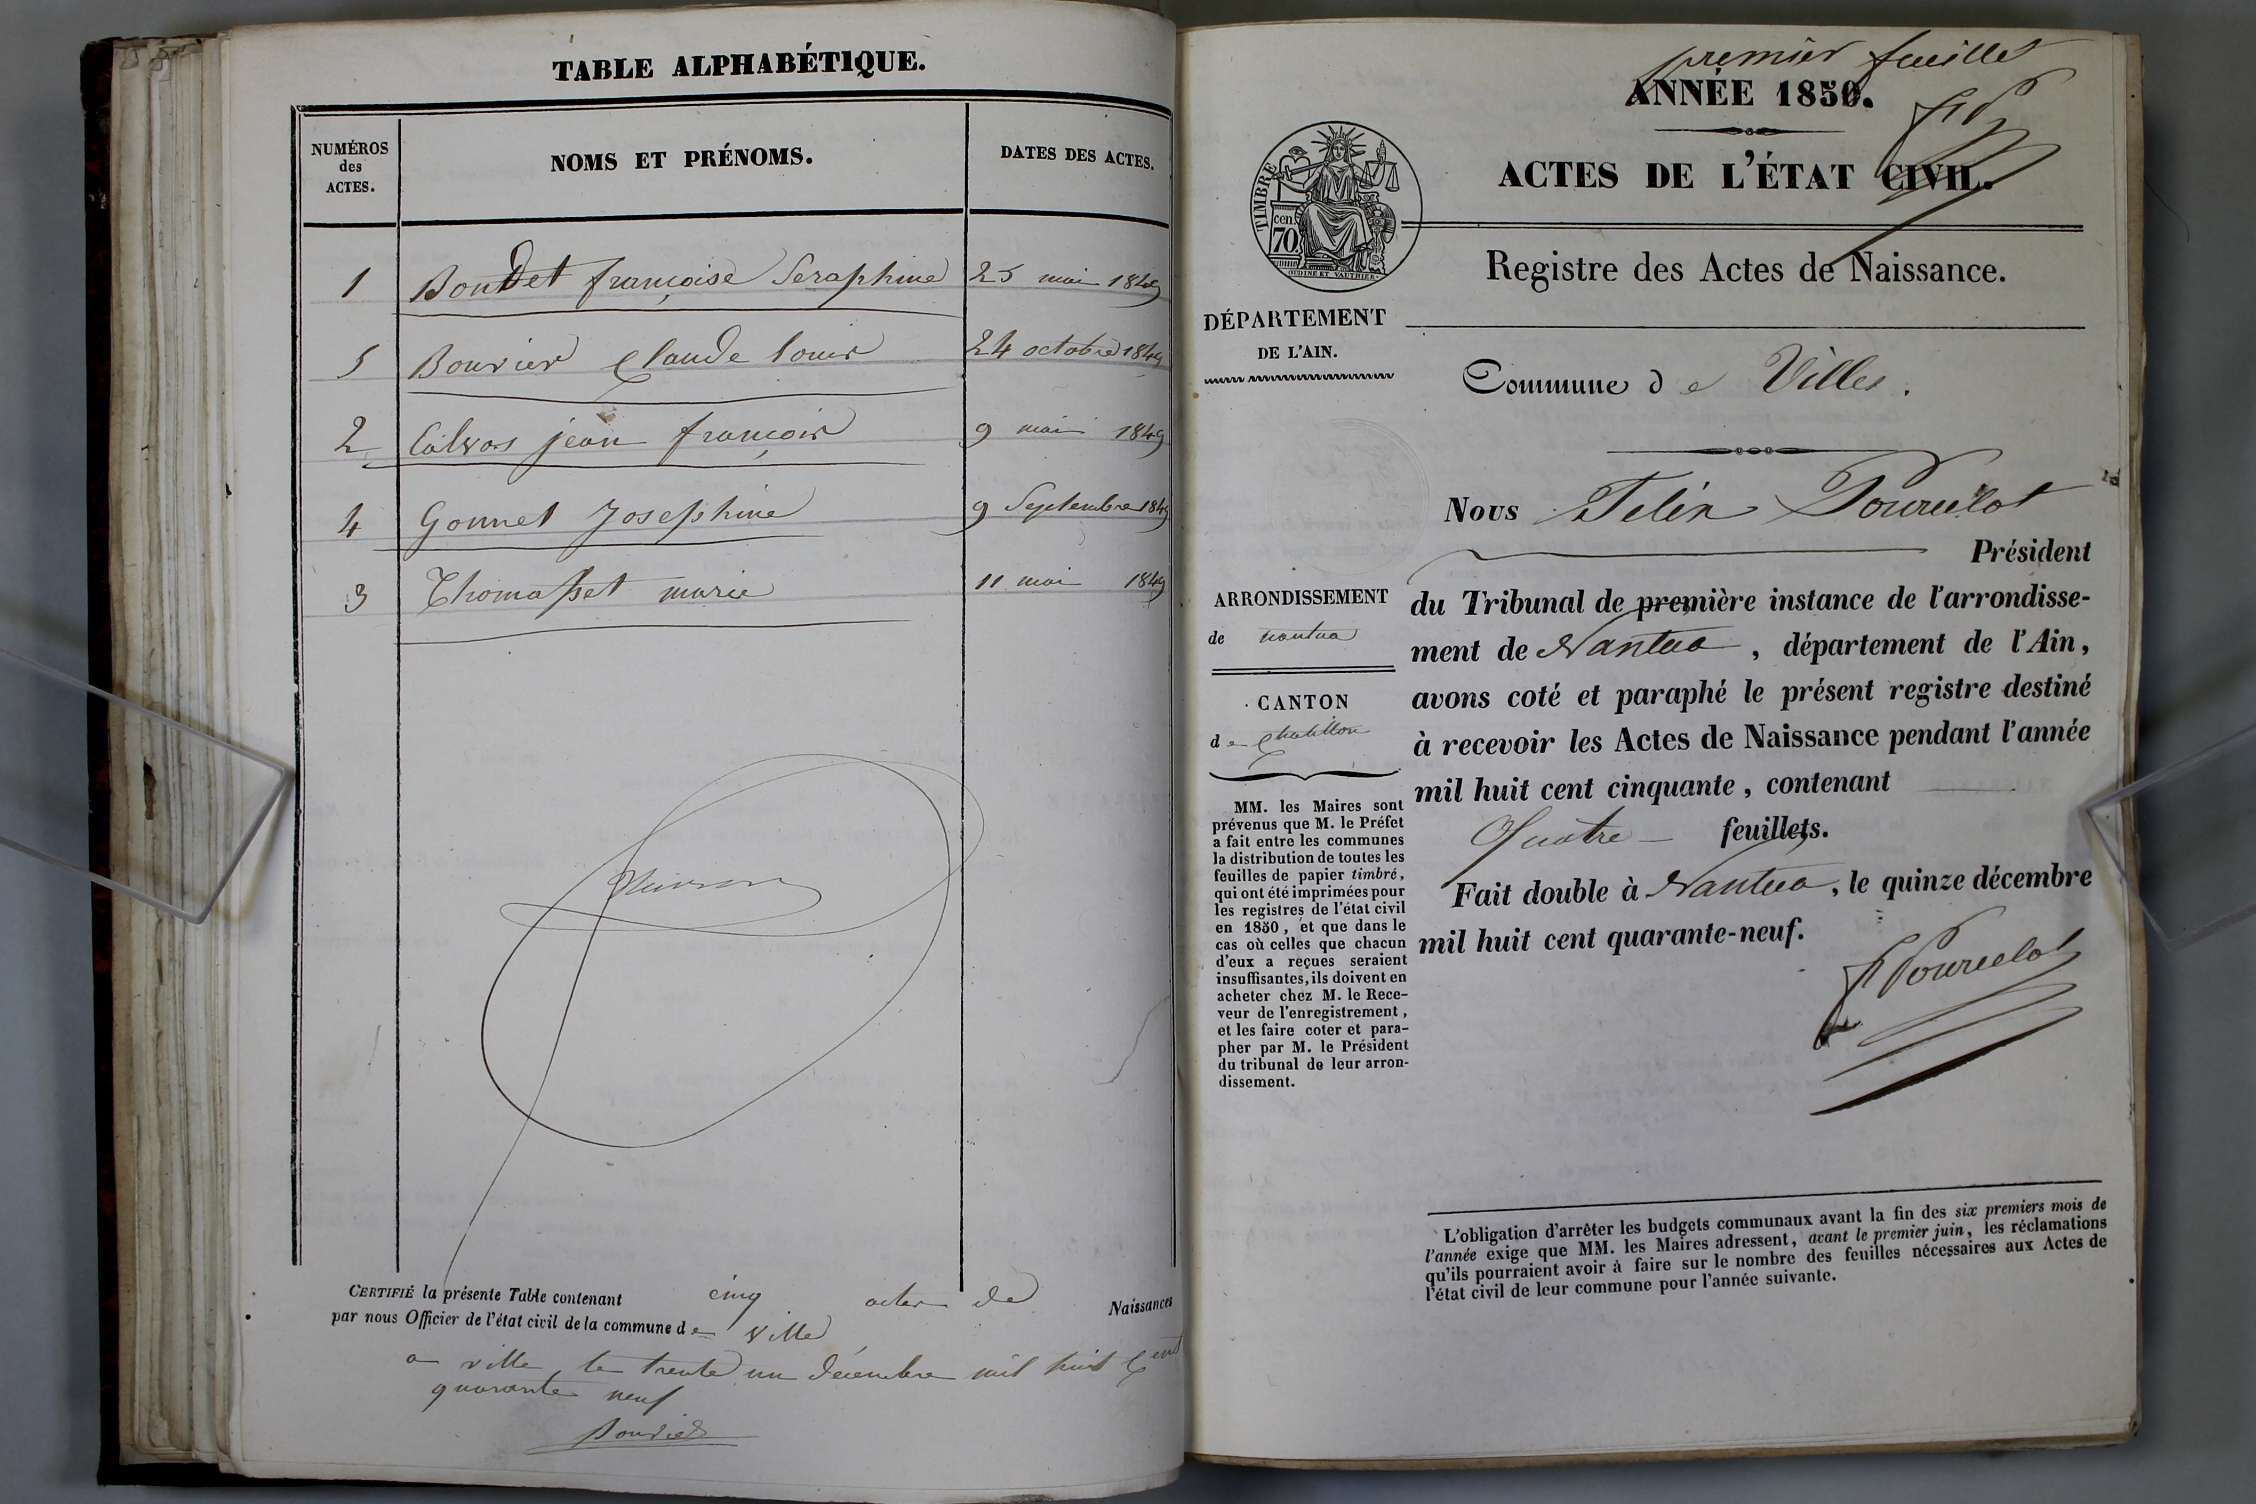 TABLE ALPHABÉTIQUE.
NUMÉROS
des
ACTES.
NOMS ET PRÉNOMS.
DATES DES ACTES.
1 Boudet françoise Seraphine 25 mai 1849
5 Bouvier Claude louis 24 octobre 1849
2 jean françois 9 mai 1849
4 Gonnet Josephine 9 Septembre 1849
3 Thomasset marie 11 mai 1849
CERTIFIÉ la présente Table contenant cinq actes de Naissances
par nous Officier de l'état civil de la commune de ville
a ville le trente un décembre mil huit Cent
quarante neuf
Bouvier
premier feuillet
ANNÉE 1850.
ACTES DE L'ÉTAT CIVIL.
TIMBRE
70
cen.
OUDINE ET VAUTHIER.
Registre des Actes de Naissance.
DÉPARTEMENT
DE L'AIN.
Commune de Villes.
Nous Felix Pourcelot
Président
du Tribunal de première instance de l'arrondisse-
ment de Nantua, département de l'Ain,
avons coté et paraphé le présent registre destiné
à recevoir les Actes de Naissance pendant l'année
mil huit cent cinquante, contenant
Quatre feuillets.
Fait double à Nantua, le quinze décembre
mil huit cent quarante-neuf.
F Pourcelot
ARRONDISSEMENT
de nantua
CANTON
de Chatillon
MM. les Maires sont
prévenus que M. le Préfet
a fait entre les communes
la distribution de toutes les
feuilles de papier timbré,
qui ont été imprimées pour
les registres de l'état civil
en 1850, et que dans le
cas où celles que chacun
d'eux a reçues seraient
insuffisantes, ils doivent en
acheter chez M. le Rece-
veur de l'enregistrement,
et les faire coter et para-
pher par M. le Président
du tribunal de leur arron-
dissement.
L'obligation d'arrêter les budgets communaux avant la fin des six premiers mois de
l'année exige que MM. les Maires adressent, avant le premier juin, les réclamations
qu'ils pourraient avoir à faire sur le nombre des feuilles nécessaires aux Actes de
l'état civil de leur commune pour l'année suivante.